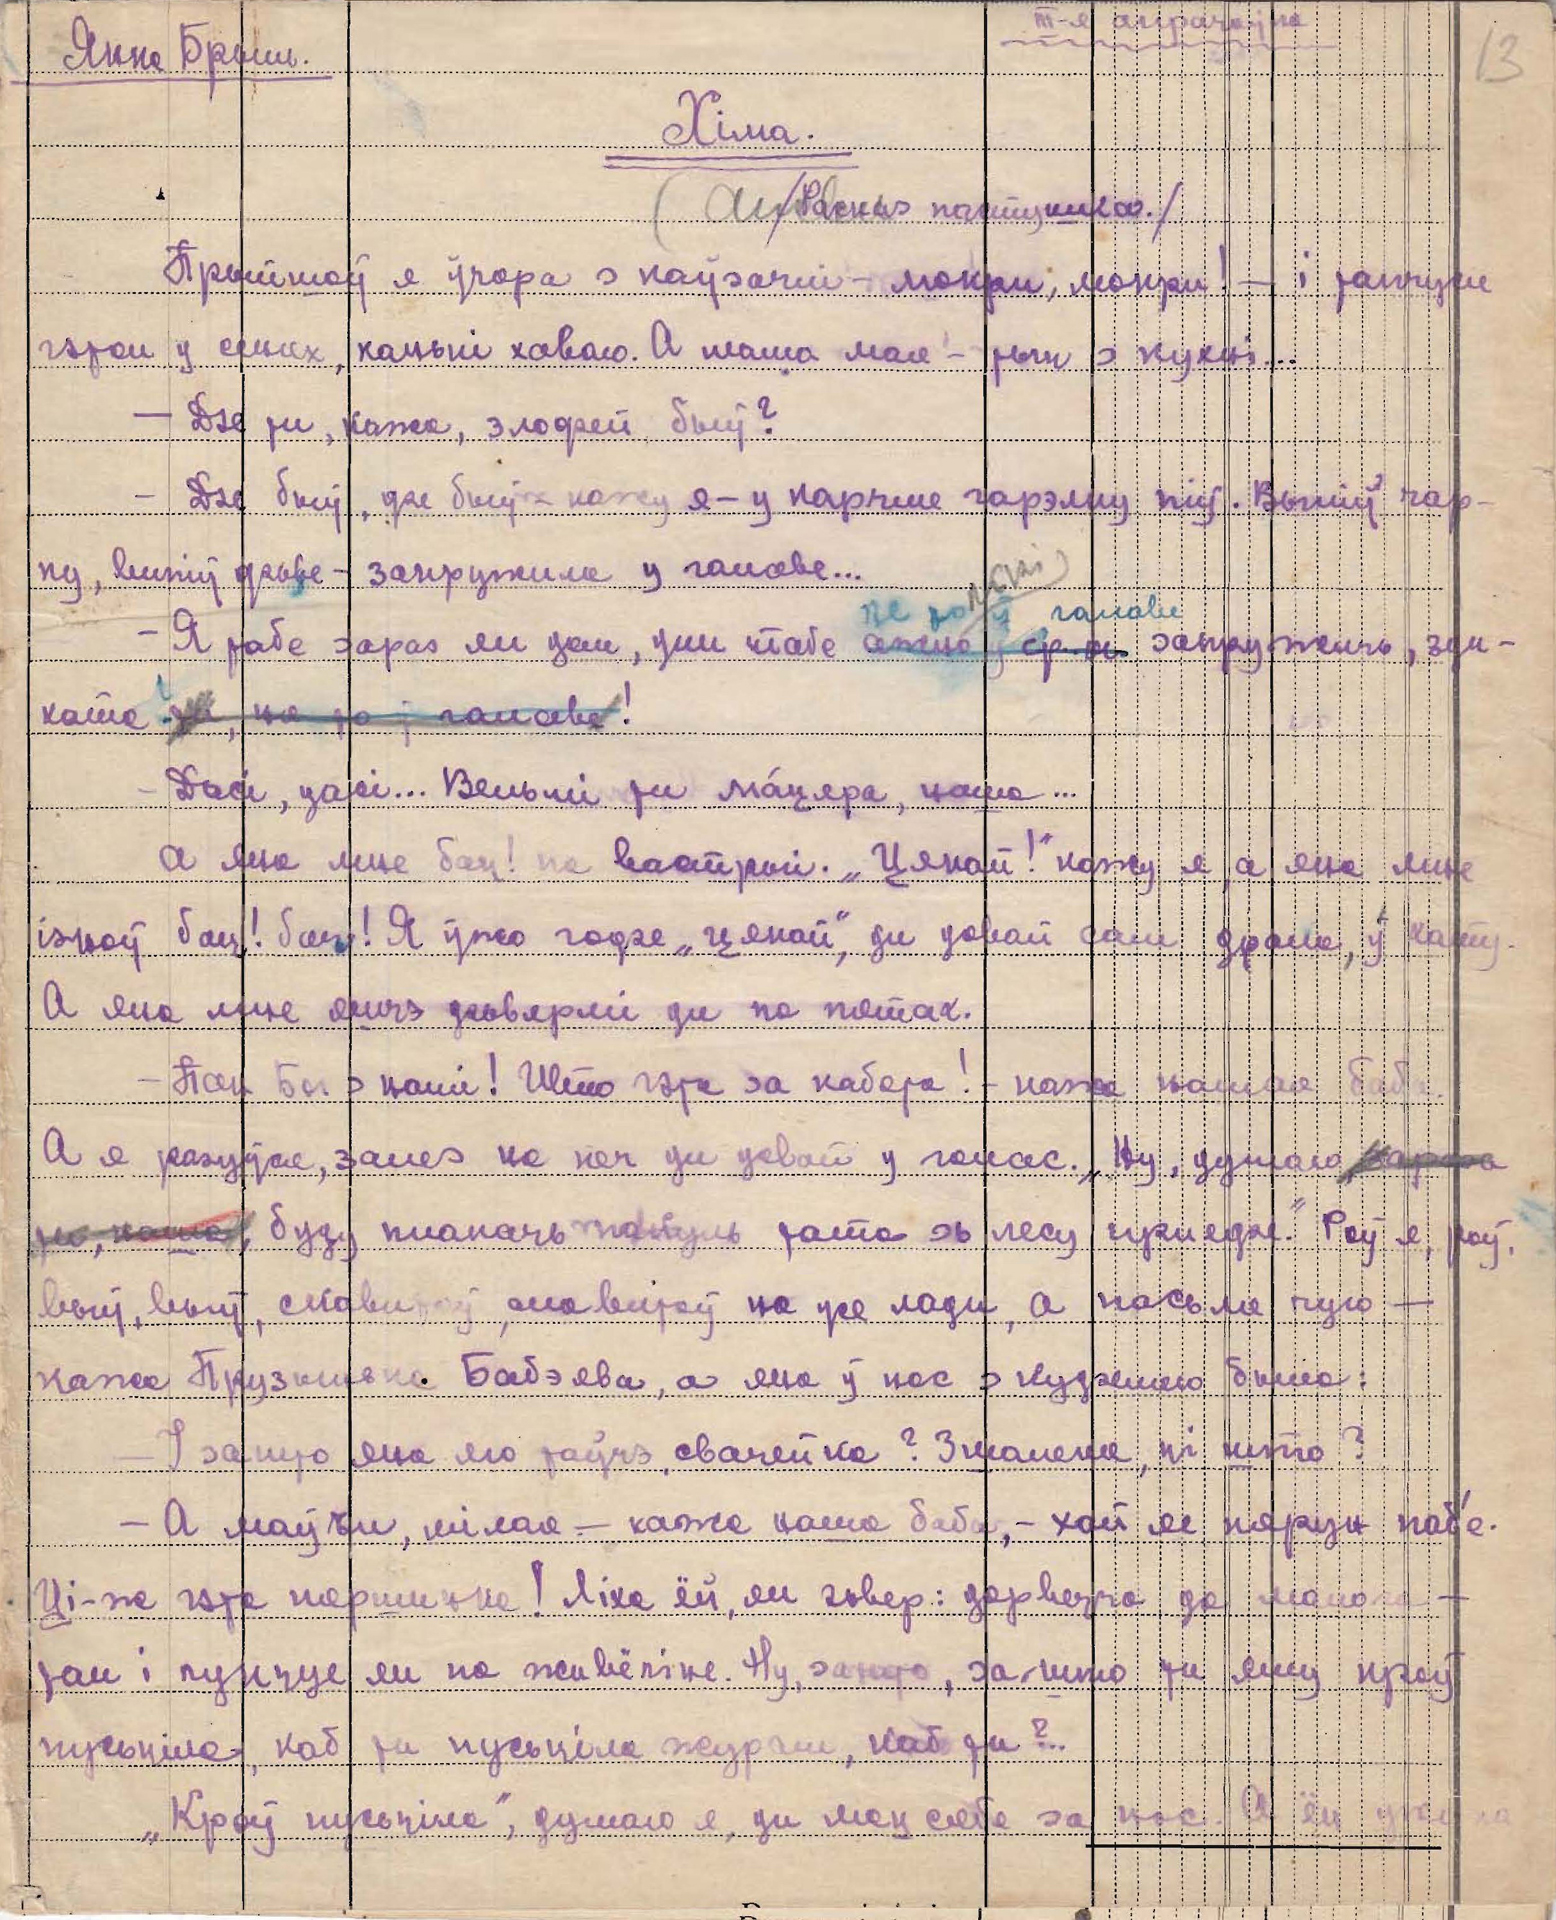 Янка Брыль.
III-я апрацоўка
13
Хіма.
/Расказ пастушка./
Прыйшоў я ўчора з каўзачкі – мокры, мокры! – і
гэтак у сенях, канькі хаваю. А мама мая – тын з кухні...
– Дзе ты, кажа, злодзей, быў?
– Дзе быў, дзе быў – кажу я – у карчме гарэлку піў. Выпіў чар-
ку, выпіў дзьве – закружыла у галаве...
– Я табе зараз як дам, дык табе не то ў галаве закружыць, зды-
хата ты, не то ў галаве!
– Дасі, дасі... Вельмі ты ма́цяра, наша...
А яна мне бац! па вострай. „Цякай!" кажу я, а яна мне
ізноў бац! бац! Я ўжо годзе „цякай", ды давай сам драла, ў хату.
А яна мне яшчэ дзьвярмі ды па пятах.
– Пан Бог з намі! Што гэта за кабета! – кажа нашая баба.
А я разуўся, залез на печ ды давай у голас. „Ну, думаю
буду плакаць пакуль тата зь лесу прыедзе." Роў я, роў,
выў, выў, скавытаў, скавытаў на усе лады, а пасьля чую –
кажа Прузыніха Бабэява, а яна ў нас з кудзеляю была:
– І за што яна яго таўчэ, свацейка? Змалела, ці што?
– А маўчы, мілая – кажа наша баба, – хай яе пярун паб'е.
Ці-ж гэта першынка! Ліха ёй, як зьвер: дарвецца да малога –
так і лупцуе як па жывёліне. Ну, за што, за што ты яму кроў
пусьціла, каб ты пусьціла жудкі, каб ты?...
„Кроў пусьціла", думаю я, ды мац сябе за нос. А ён